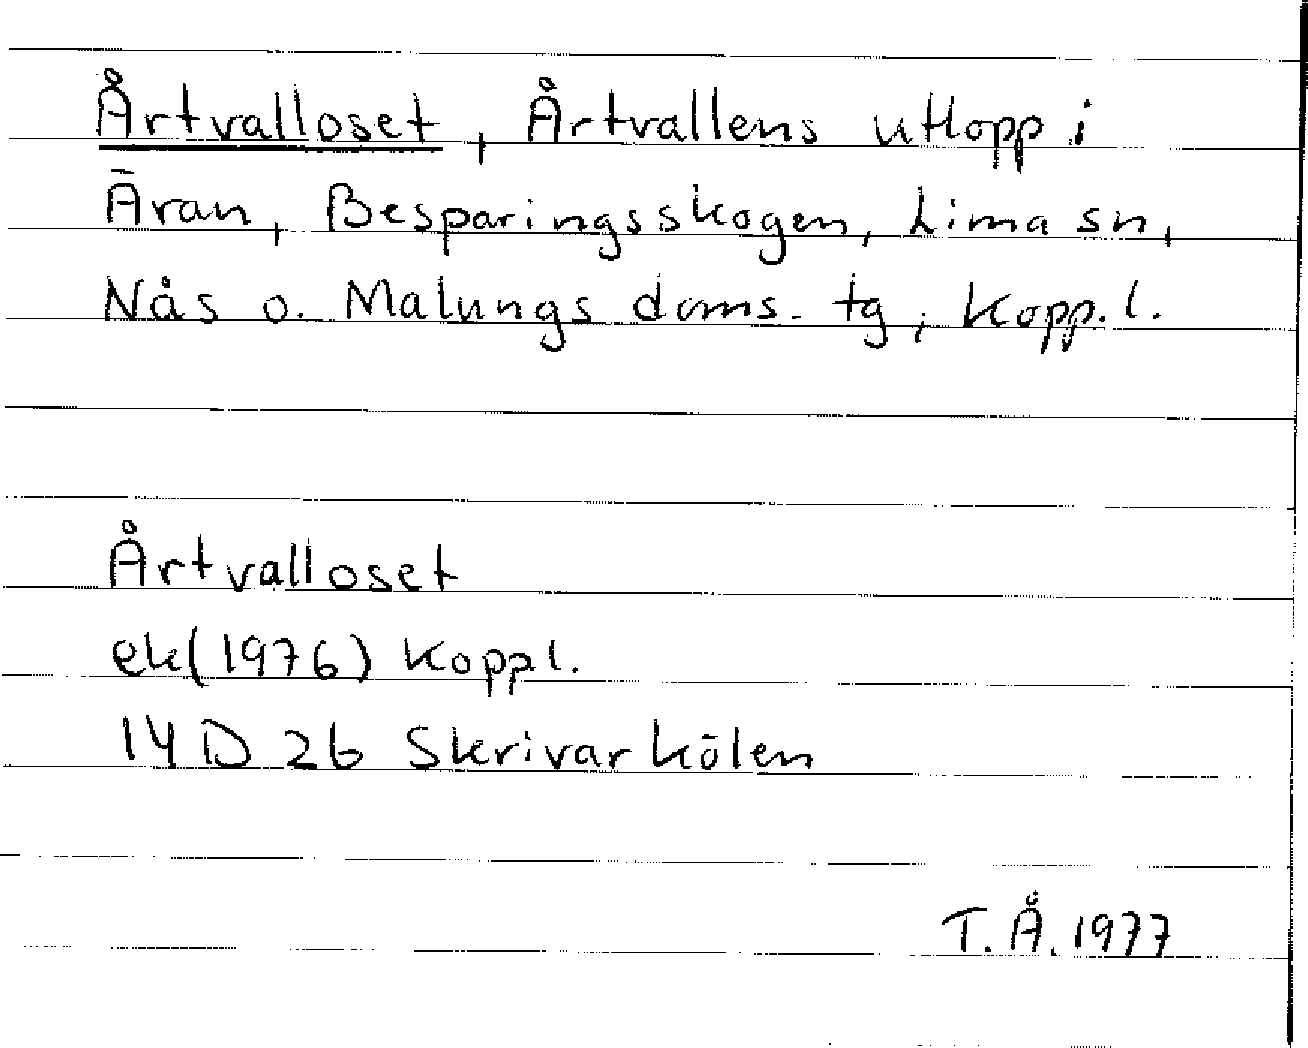 Årtvalloset, Årtvallens utlopp i
Äran, Besparingsskogen, Lima sn,
Nås o. Malungs doms. tg, Kopp. l.
Årtvalloset
ek(1976) Koppl.
14 D 2b Skrivarkölen
T. Å. 1977